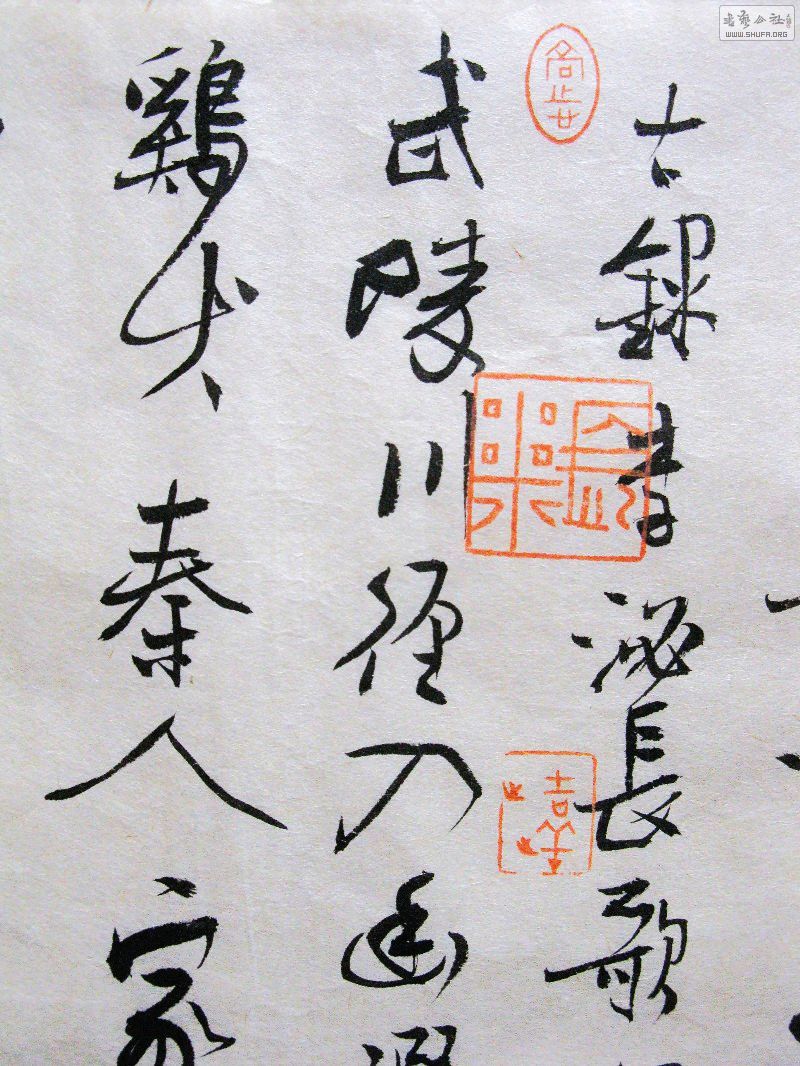 書藝公社
WWW.SHUFA.ORG
錄李泌長歌
武陵川徑入幽
鷄犬秦人家